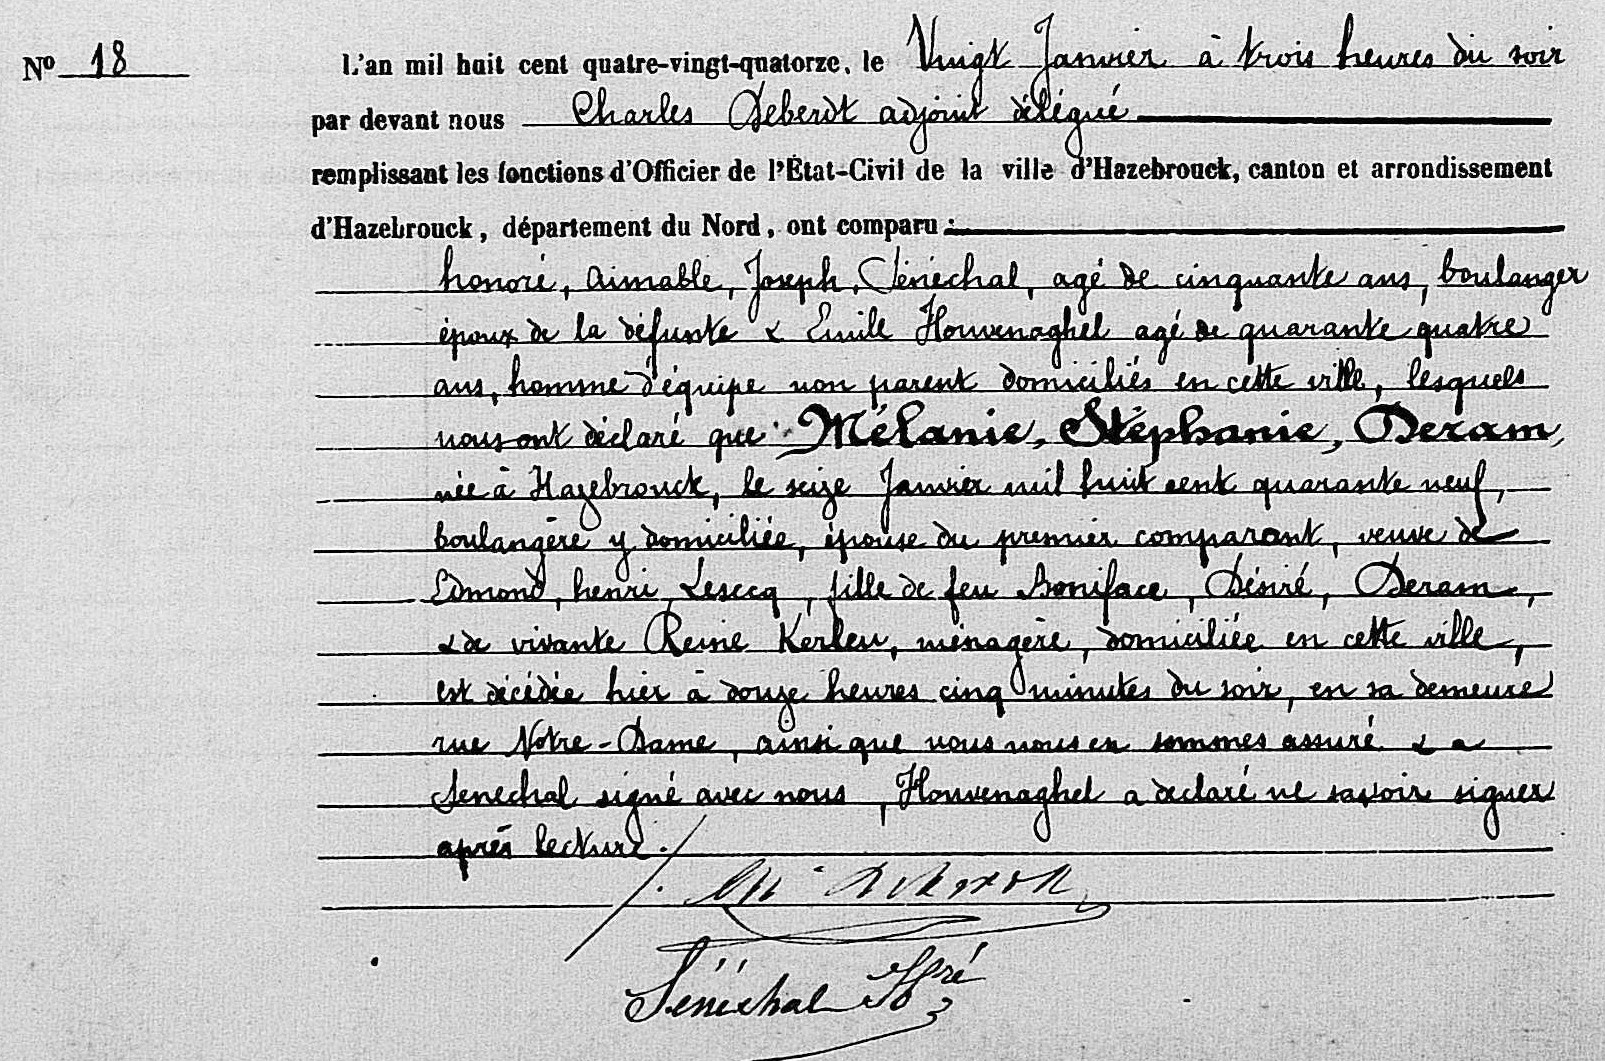 N° 18
L'an mil huit cent quatre-vingt-quatorze, le Vingt Janvier à trois heures du soir
par devant nous Charles Deberdt adjoint délégué
remplissant les fonctions d'Officier de l'État-Civil de la ville d'Hazebrouck, canton et arrondissement
d'Hazebrouck, département du Nord, ont comparu :
honoré, Aimable, Joseph, Sénéchal, agé de cinquante ans, boulanger
époux de la défunte & Emile Houvenaghel agé de quarante quatre
ans, homme d'équipe non parent domiciliés en cette ville, lesquels
nous ont déclaré que Mélanie, Stéphanie, Deram,
née à Hazebrouck, le seize Janvier mil huit cent quarante neuf,
boulangère y domiciliée, épouse du premier comparant, veuve de
Edmond, henri, Lesecq, fille de feu Boniface, Désiré, Deram,
& de vivante Reine Kerleu, ménagère, domiciliée en cette ville,
est décédée hier à douze heures cinq minutes du soir, en sa demeure
rue Notre-Dame, ainsi que nous nous en sommes assuré & a
Senechal signé avec nous, Houvenaghel a declaré ne savoir signer
après lecture.
Ch. Deberdt
Sénéchal hré